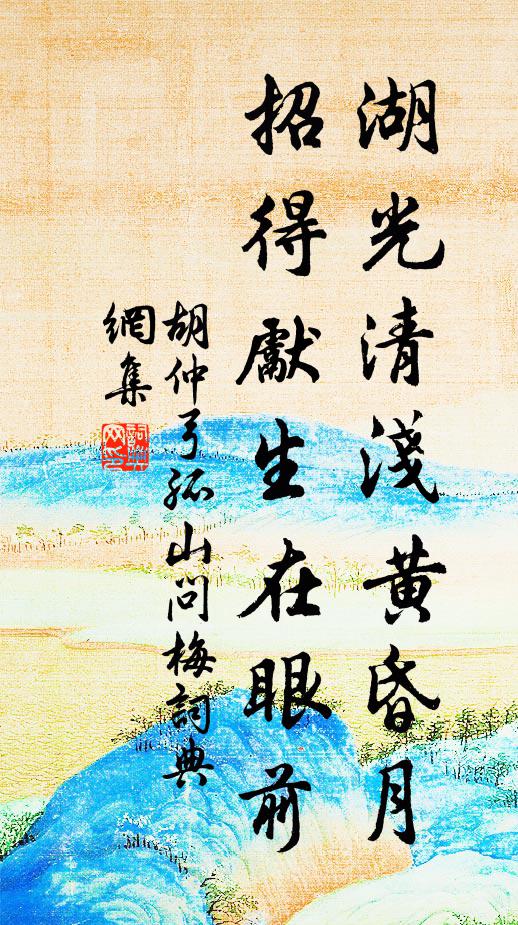 湖光清淺黄昏月
招得獻生在眼前
胡仲弓孤山问梅詞典
網集